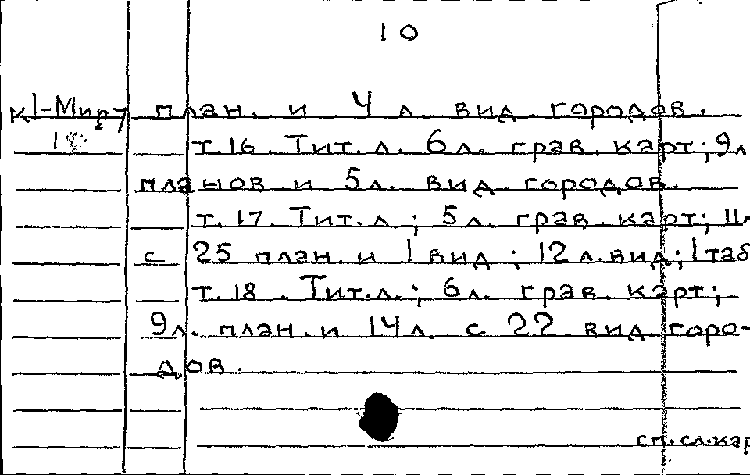 10
К1-Мир7 план. и 4 л. вид городов.
18 т.16. Тит. л. 6л. грав. карт; 9л
планов и 5л. вид городов.
т. 17. Тит. л; 5л. грав. карт; 11л
с 25 план. и 1 вид; 12 л. вид; 1 таб
т. 18. Тит. л.; 6л. грав. карт;
9л. план. и 14л. с 22 вид горо-
дов.
см. сл. кар